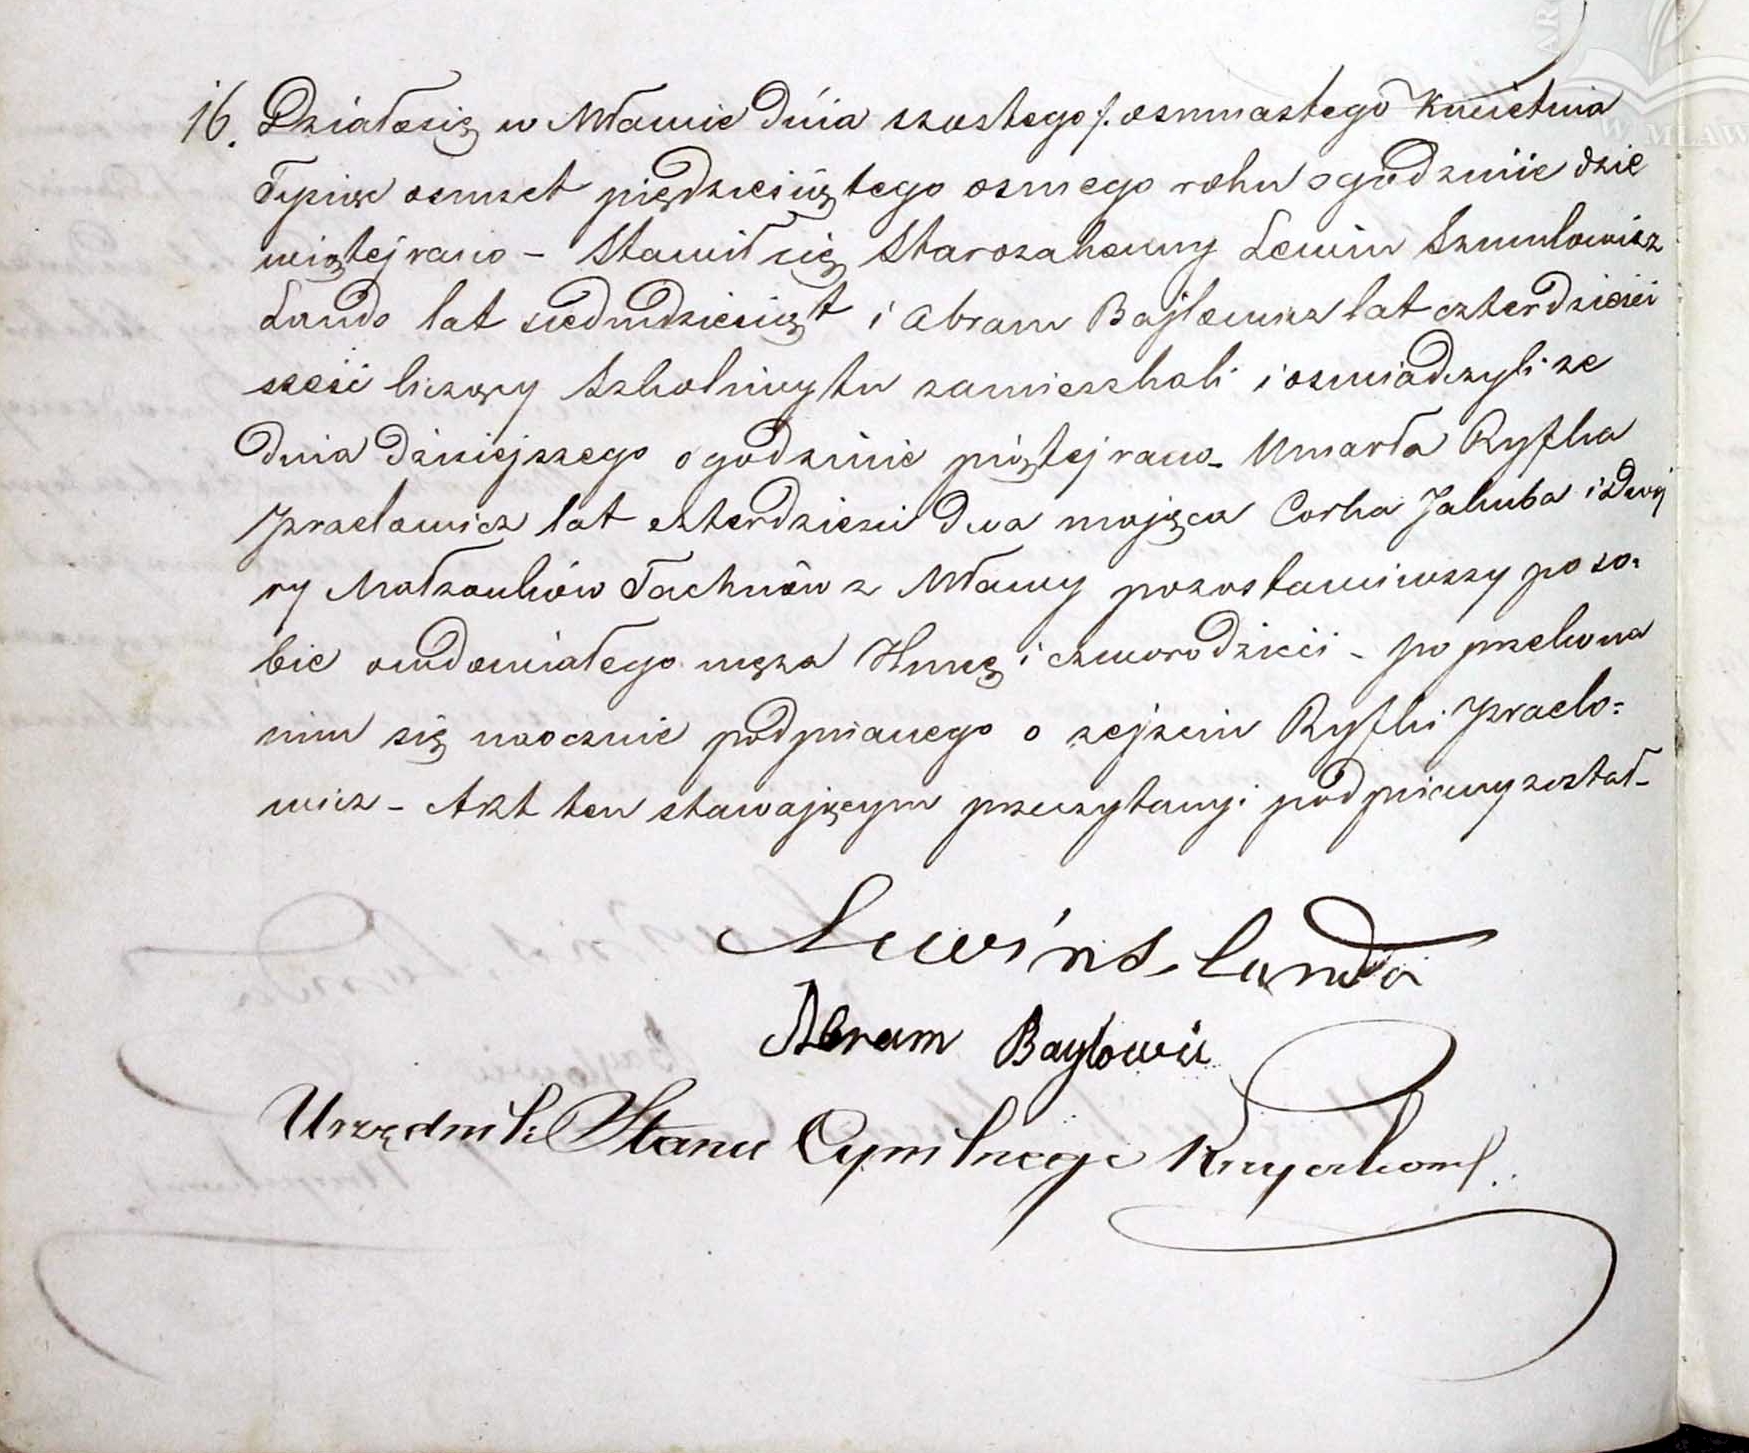 16. Działosię w Mławie dnia szostego /. osmnastego Kwietnia
Tysiąc osmset piędziesiątego osmego roku o godzinie dzie
wiątej rano – Stawił się Starozakonny Lewin Szmulowicz
Lando lat siedmdziesiąt i Abram Bajlowicz lat czterdzieści
sześć liczący Szkolnicy tu zamieszkali i oswiadczyli ze
dnia dzisiejszego o godzinie piątej rano – Umarła Ryfka
Jzraelowicz lat czterdzieści dwa mająca Corka Jakuba i Dwoj
ry Małzonków Tachnów z Mławy pozostawiwszy po so=
bie owdowiałego męza Hmę i czworo dzieci – po przekona
niu się naocznie podpisanego o zejsciu Ryfki Jzraelo=
wicz – Akt ten stawającym przeczytany i podpisany został –
Lewin S. Landa
Abram Baylowic
Urzędnik Stanu Cywilnego